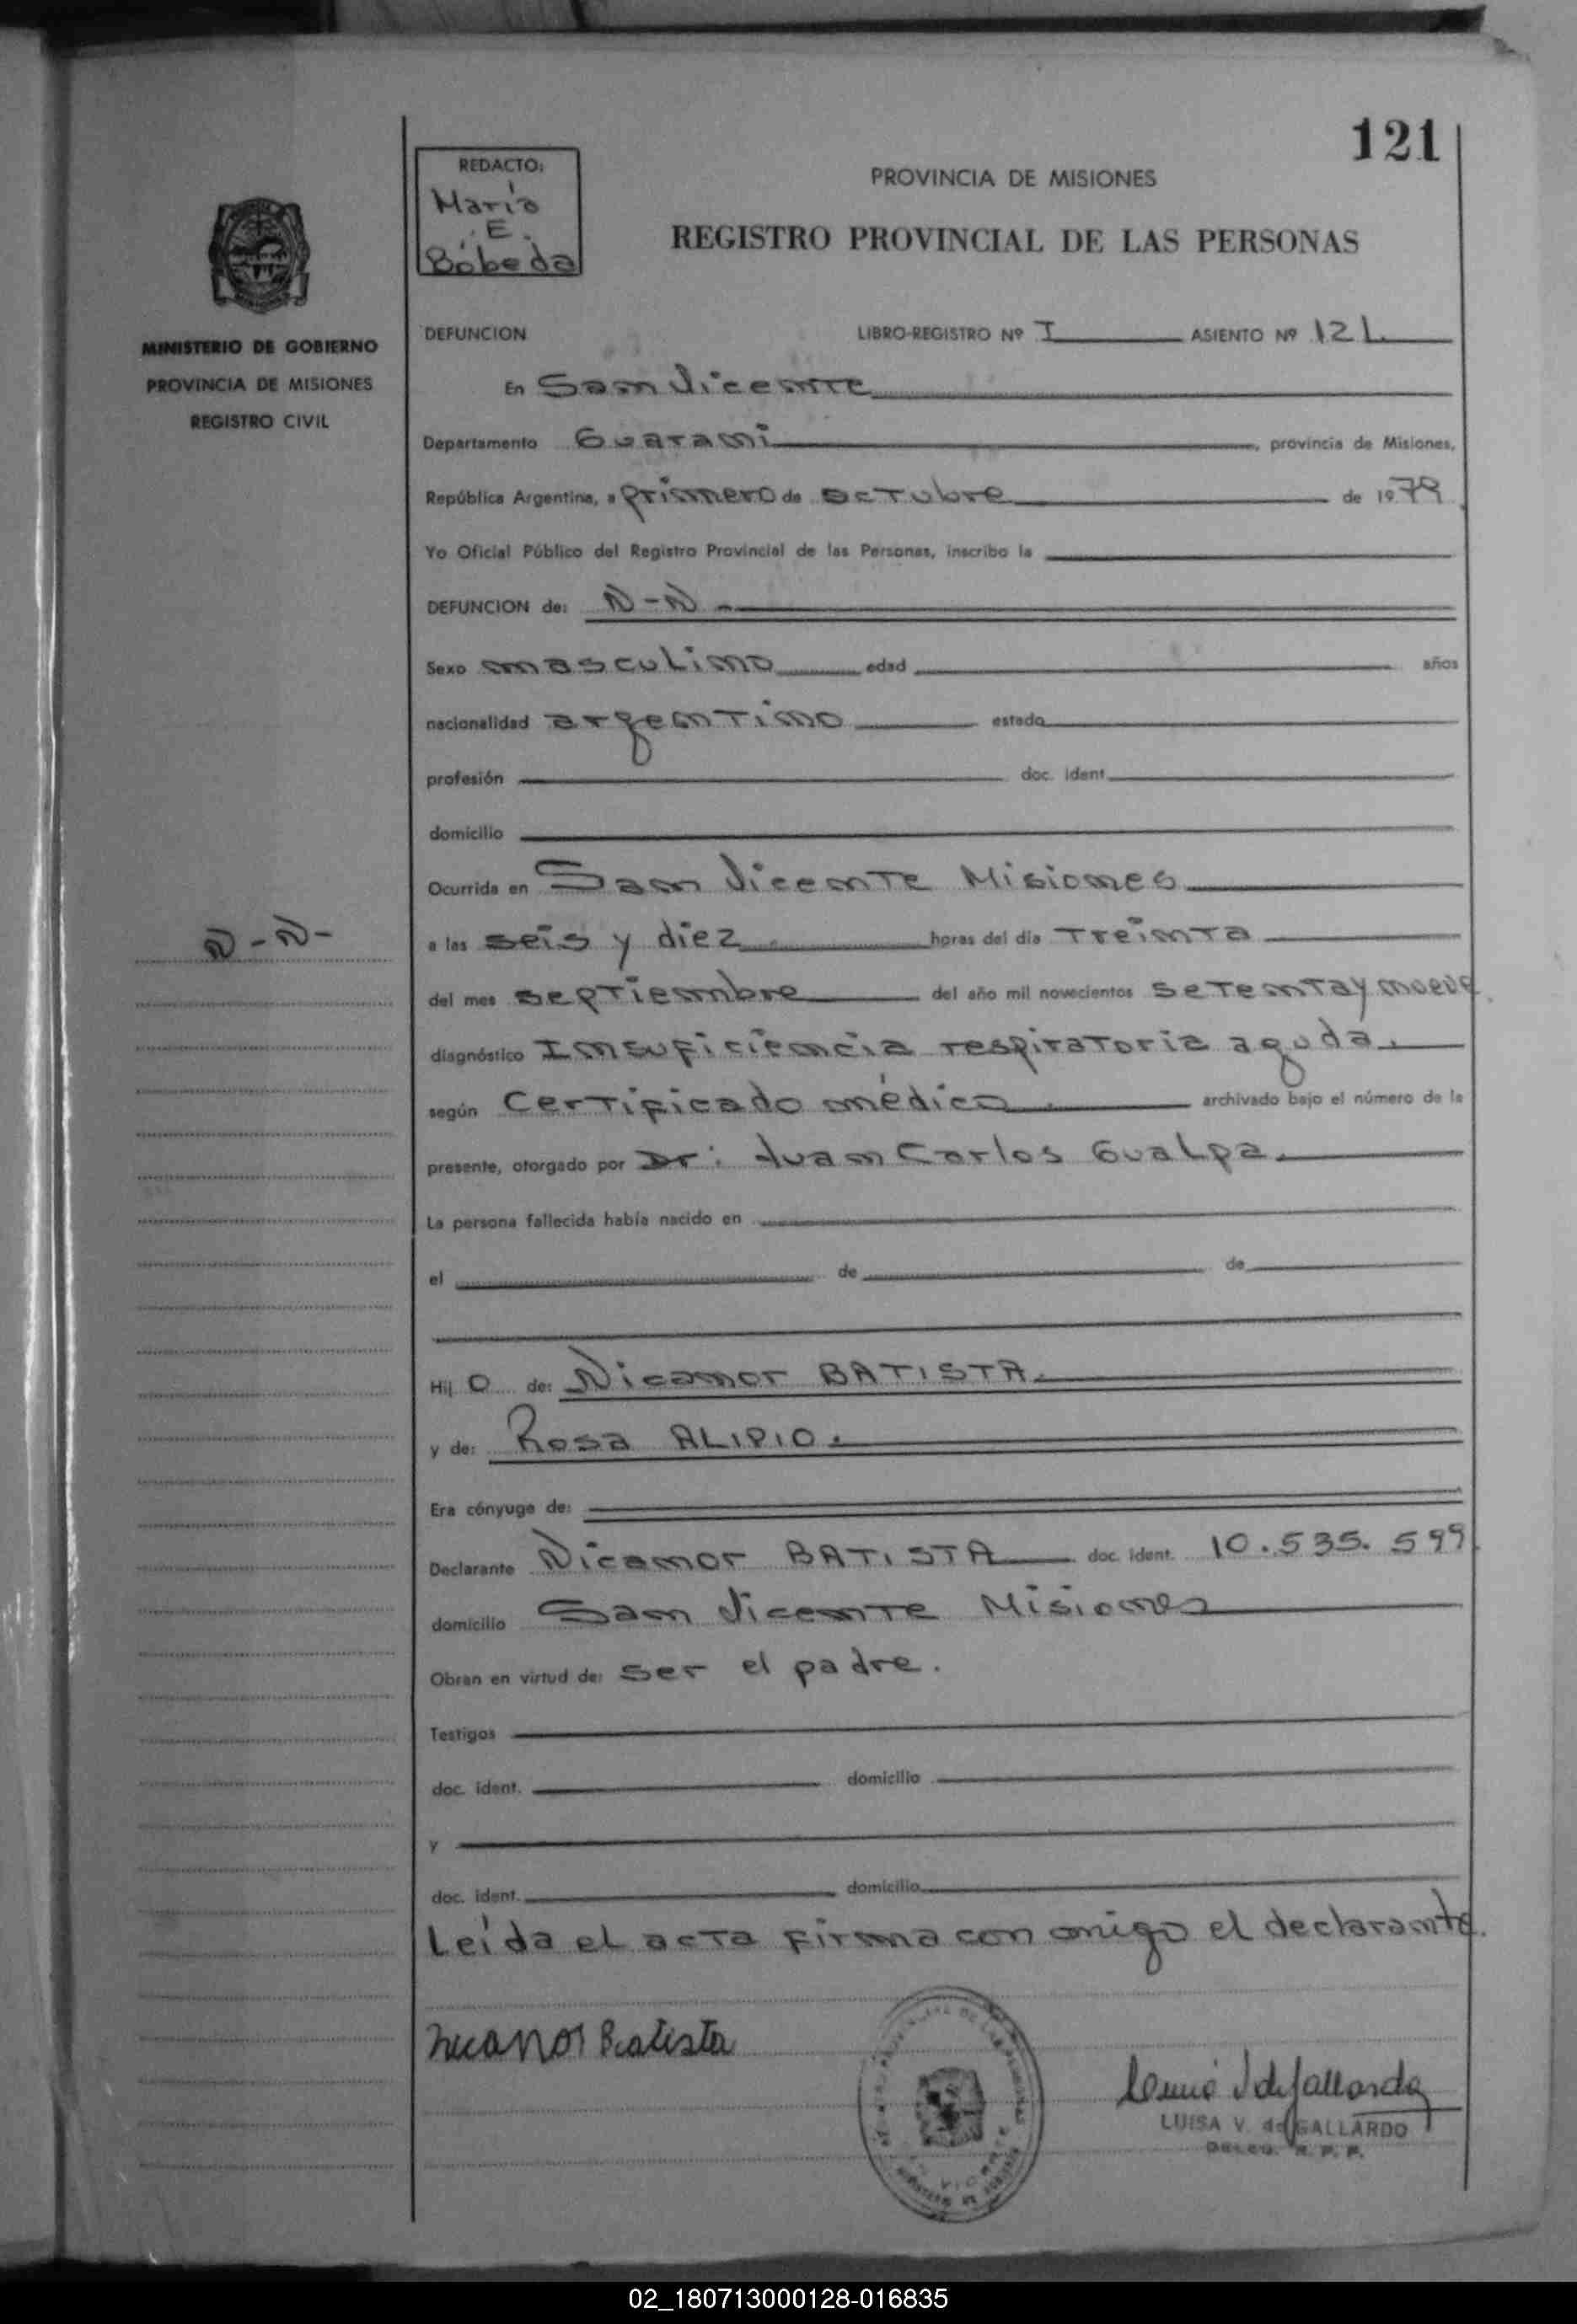 121
REDACTO:
Mario
E.
Bóbeda
PROVINCIA DE MISIONES
REGISTRO PROVINCIAL DE LAS PERSONAS
MINISTERIO DE GOBIERNO
PROVINCIA DE MISIONES
REGISTRO CIVIL
DEFUNCION LIBRO-REGISTRO Nº I ASIENTO Nº 121
En San Vicente
Departamento Guarani, provincia de Misiones,
República Argentina, a primero de octubre de 1979
Yo Oficial Público del Registro Provincial de las Personas, inscribo la
DEFUNCION de: N-N
Sexo masculino edad años
nacionalidad argentino estado
profesión doc. ident.
domicilio
Ocurrida en San Vicente Misiones
N-N-
a las seis y diez horas del día Treinta
del mes septiembre del año mil novecientos setenta y nueve
diagnóstico Insuficiencia respiratoria aguda.
según Certificado médico archivado bajo el número de la
presente, otorgado por Dr: Juan Carlos Gualpa.
La persona fallecida había nacido en
el de de
Hij o de: Nicanor BATISTA.
y de: Rosa ALIPIO.
Era cónyuge de:
Declarante Nicanor BATISTA doc. ident. 10.535.599
domicilio San Vicente Misiones
Obran en virtud de: ser el padre.
Testigos
doc. ident. domicilio
y
doc. ident. domicilio
Leída el acta firma con migo el declarante.
Nicanor Batista
LUISA V. de GALLARDO
DELEG. R. P. P.
02_180713000128-016835